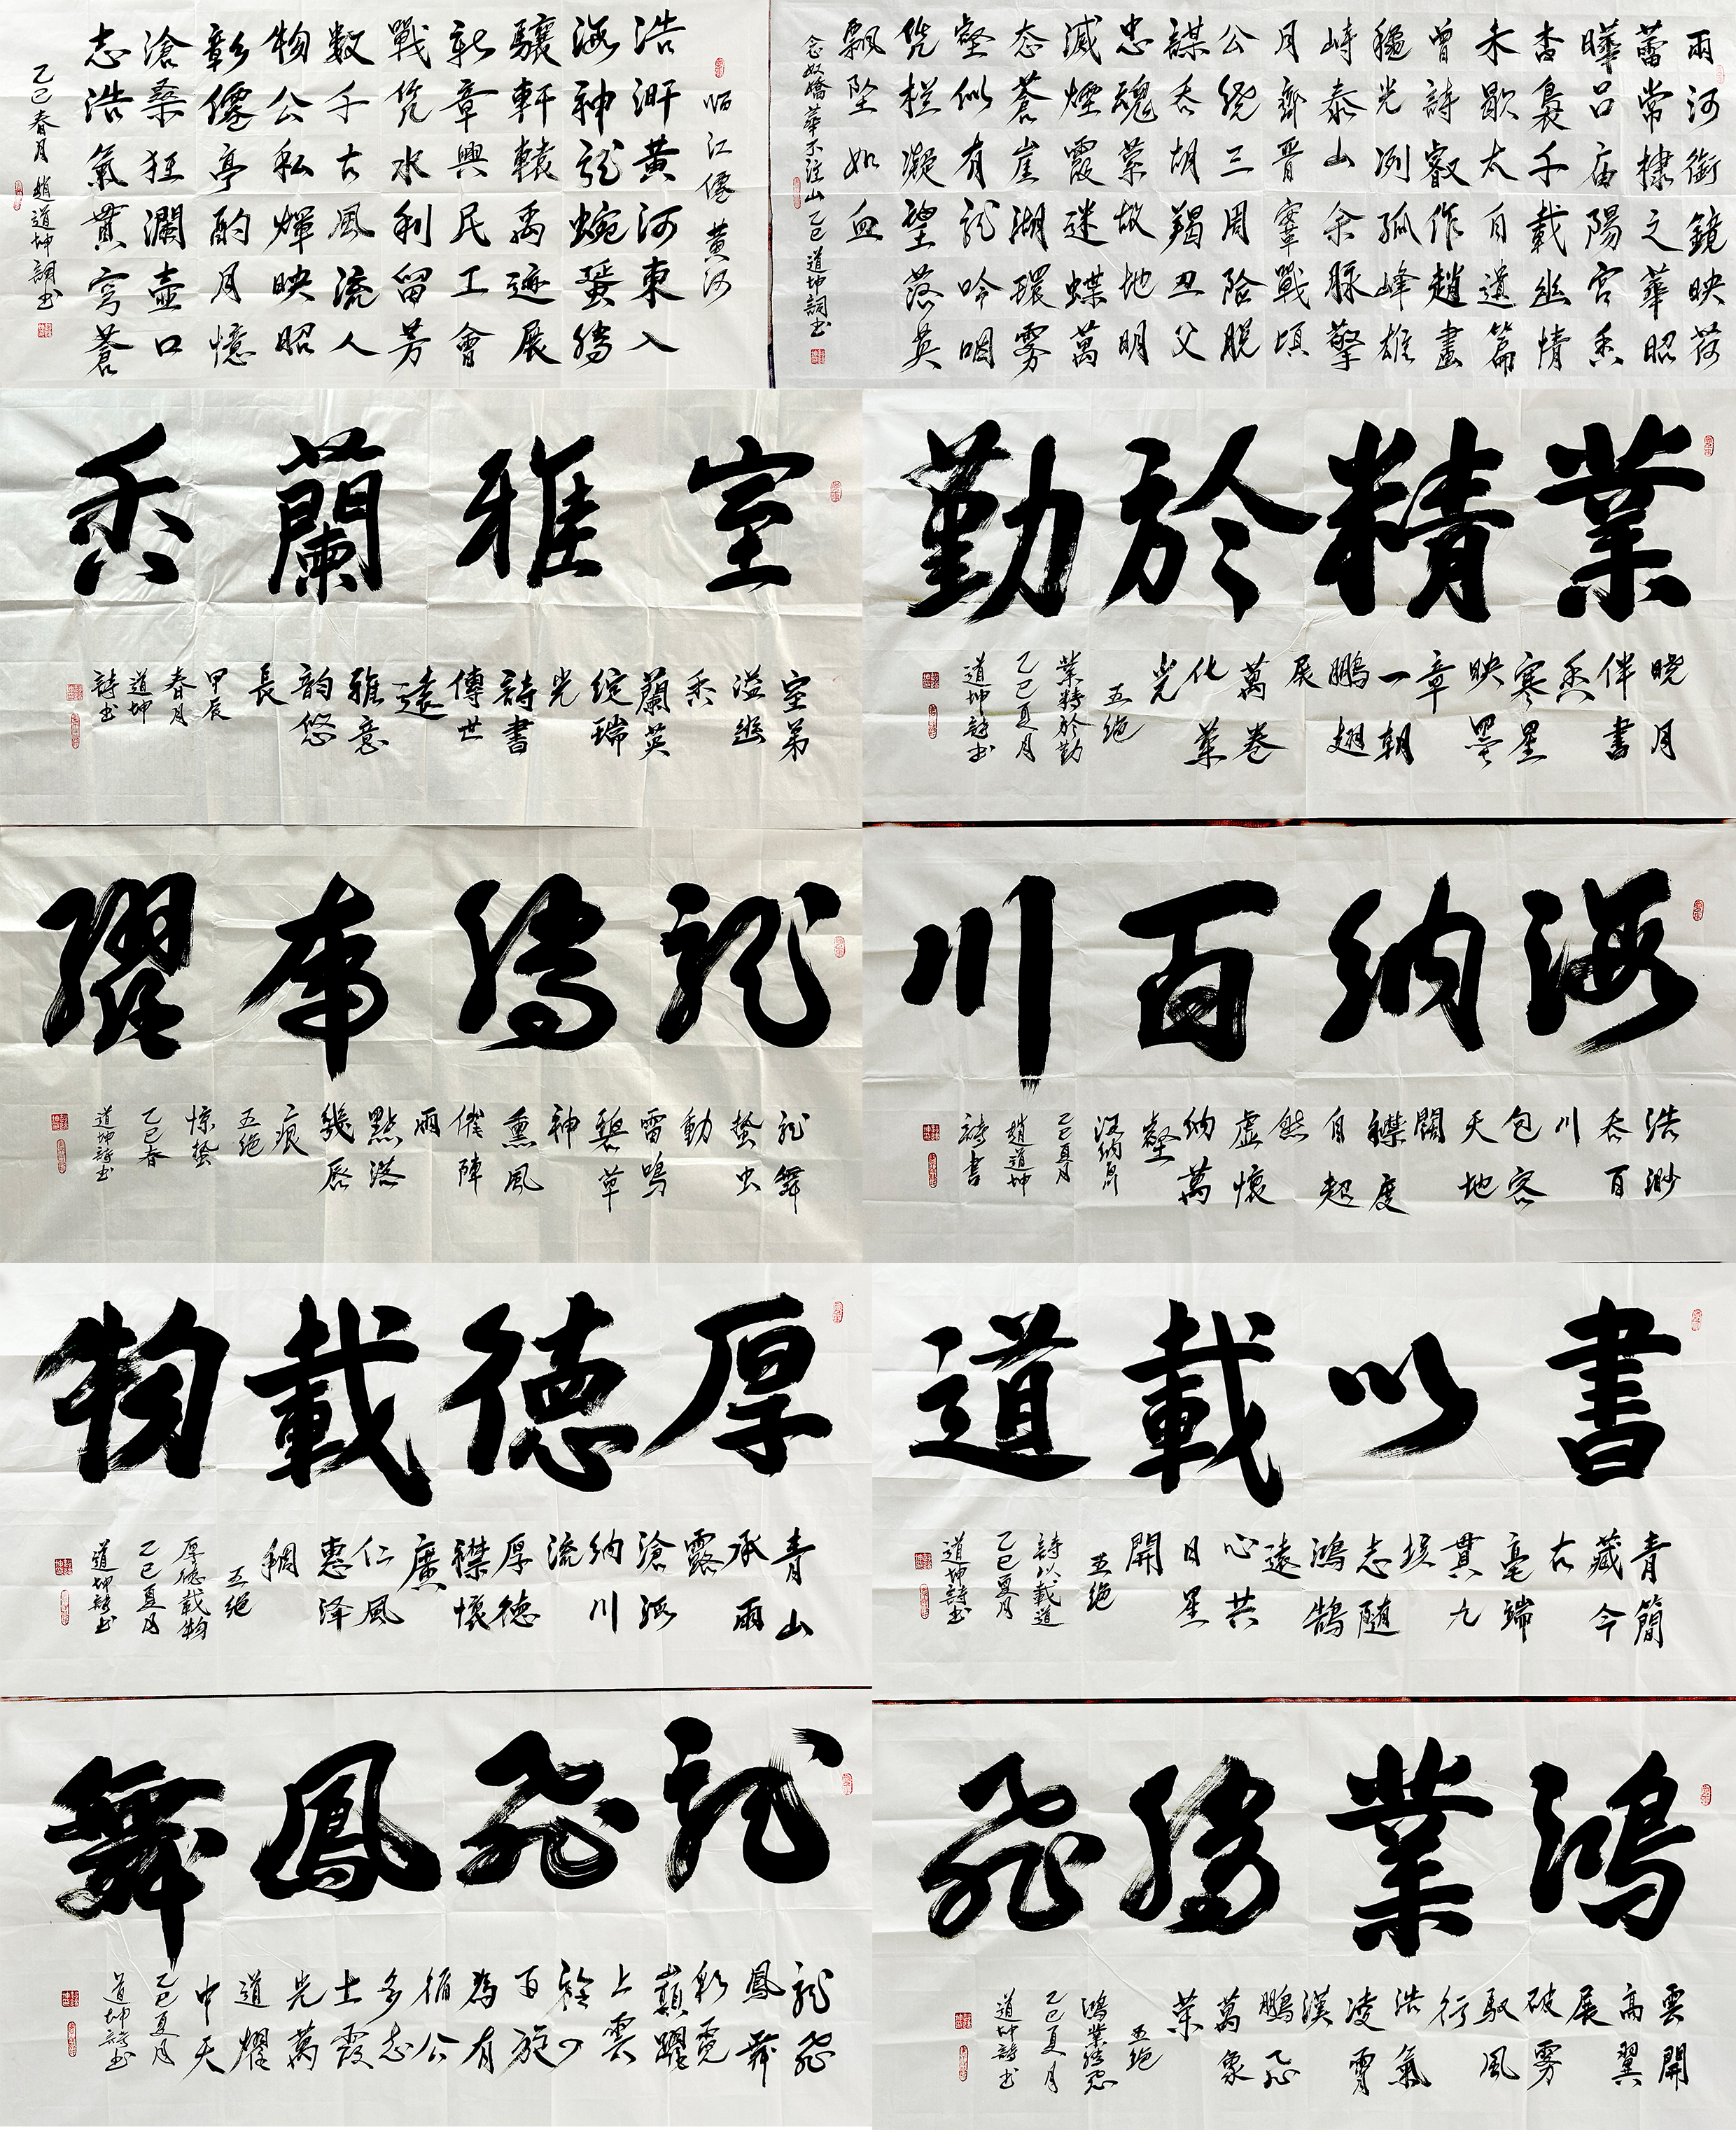 临江僊 黄河
浩汧黄河東入
海神龍蜿蜑騰
驤軒轅禹迹展
新章興民工會
戰凭水利留芳
数千古風流人
物公私輝映昭
彰僊亭酌月憶
滄桑狂瀾壺口
志浩氣貫穹蒼
乙巳春月 趙道坤詞书
雨河銜鏡映荷
蕾常棣之華昭
曄吕庙陽宫香
杳裊千載幽情
未歇太白遺篇
曾詩叡作趙畫
穐光冽孤峰雄
峙泰山余脉擎
月齊晋鞌戰頃
公繞三周險脱
謀吞胡羯丑父
忠魂縈故地明
滅煙霞迷蝶萬
态蒼崖湖環雾
壑似有龍吟咽
凭栏凝望落英
飘坠如血
念奴嬌華不注山 乙巳 道坤詞书
室雅蘭香
室弟
溢幽
香
蘭英
綻瑞
光
詩書
傳世
遠
雅意
韵悠
長
甲辰
春月
道坤
詩书
業精於勤
晓月
伴書
香
寒星
映墨
章
一朝
鹏翅
展
萬卷
化業
光
五绝
業精於勤
乙巳夏月
道坤詩书
龍騰虎躍
龍舞
蛰虫
動
雷鳴
碧草
神
熏風
催陣
雨
點落
幾唇
痕
五绝
惊蛰
乙巳春
道坤詩书
海納百川
浩渺
吞百
川
包容
天地
闊
襟度
自超
然
虚懷
納萬
壑
海納百川
乙巳夏月
趙道坤
詩書
厚德載物
青山
承雨
露
滄海
納川
流
厚德
襟懷
廣
仁風
惠泽
稠
五绝
厚德載物
乙巳夏月
道坤詩书
書以載道
青簡
藏今
古
毫端
貫九
垓
志随
鴻鵠
遠
心共
日星
開
五绝
詩以載道
乙巳夏月
道坤詩书
龍飛鳳舞
龍飛
鳳舞
彩霓
巔躍
上雲
百施
為有
循公
多志
士霞
光萬
道耀
中天
乙巳夏月
道坤詩书
鴻業騰飛
雲開
高翼
展
破雾
馭風
行
浩氣
凌霄
漢
鵬飛
萬象
榮
五绝
鴻業騰飛
乙巳夏月
道坤詩书